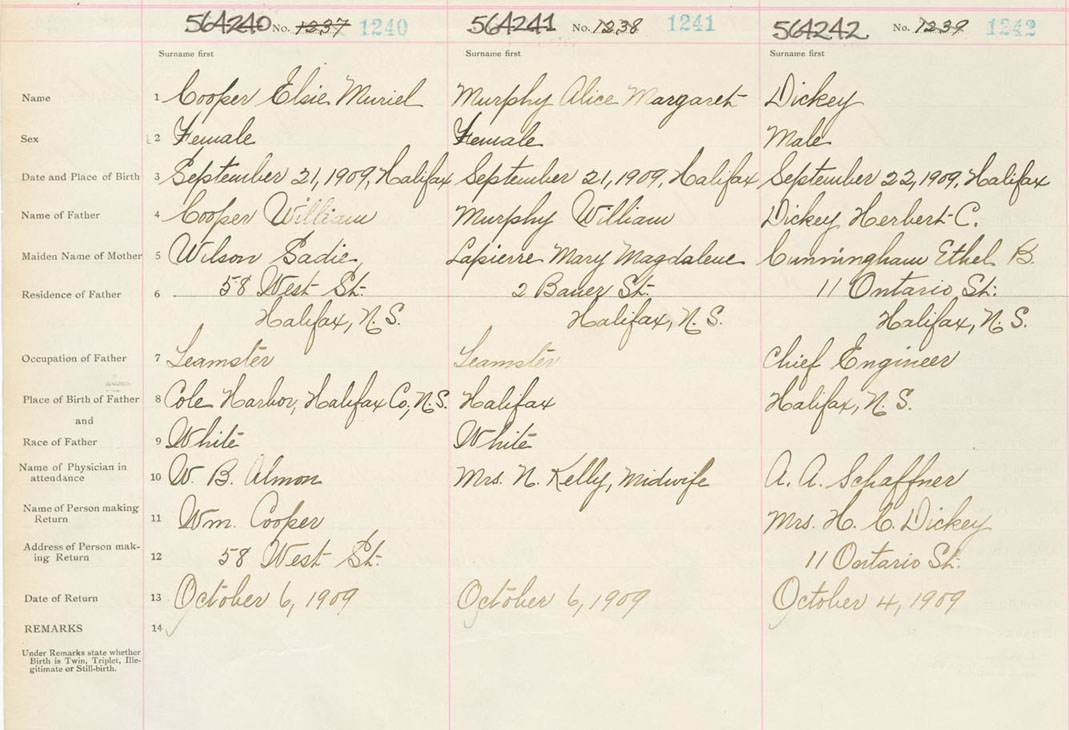 564240 No. 1237 1240 564241 No. 1238 1241 564242 No. 1239 1242
Surname first Surname first Surname first
Name 1 Cooper Elsie Muriel Murphy Alice Margaret Dickey
Sex 2 Female Female Male
Date and Place of Birth 3 September 21, 1909, Halifax September 21, 1909, Halifax September 22, 1909, Halifax
Name of Father 4 Cooper William Murphy William Dickey Herbert C.
Maiden Name of Mother 5 Wilson Sadie, Lapierre Mary Magdalene Cunningham Ethel B.
Residence of Father 6 58 West St. 2 Bauer St. 11 Ontario St.
Halifax, N.S. Halifax, N.S. Halifax, N.S.
Occupation of Father 7 Teamster Teamster Chief Engineer
Place of Birth of Father 8 Cole Harbor, Halifax Co, N.S. Halifax Halifax, N.S.
and
Race of Father 9 White White
Name of Physician in
attendance 10 W. B. Almon Mrs. N. Kelly, Midwife A. A. Schaffner
Name of Person making
Return 11 Wm. Cooper Mrs. H. C. Dickey
Address of Person mak-
ing Return 12 58 West St. 11 Ontario St.
Date of Return 13 October 6, 1909 October 6, 1909 October 4, 1909
REMARKS 14
Under Remarks state whether
Birth is Twin, Triplet, Ille-
gitimate or Still-birth.